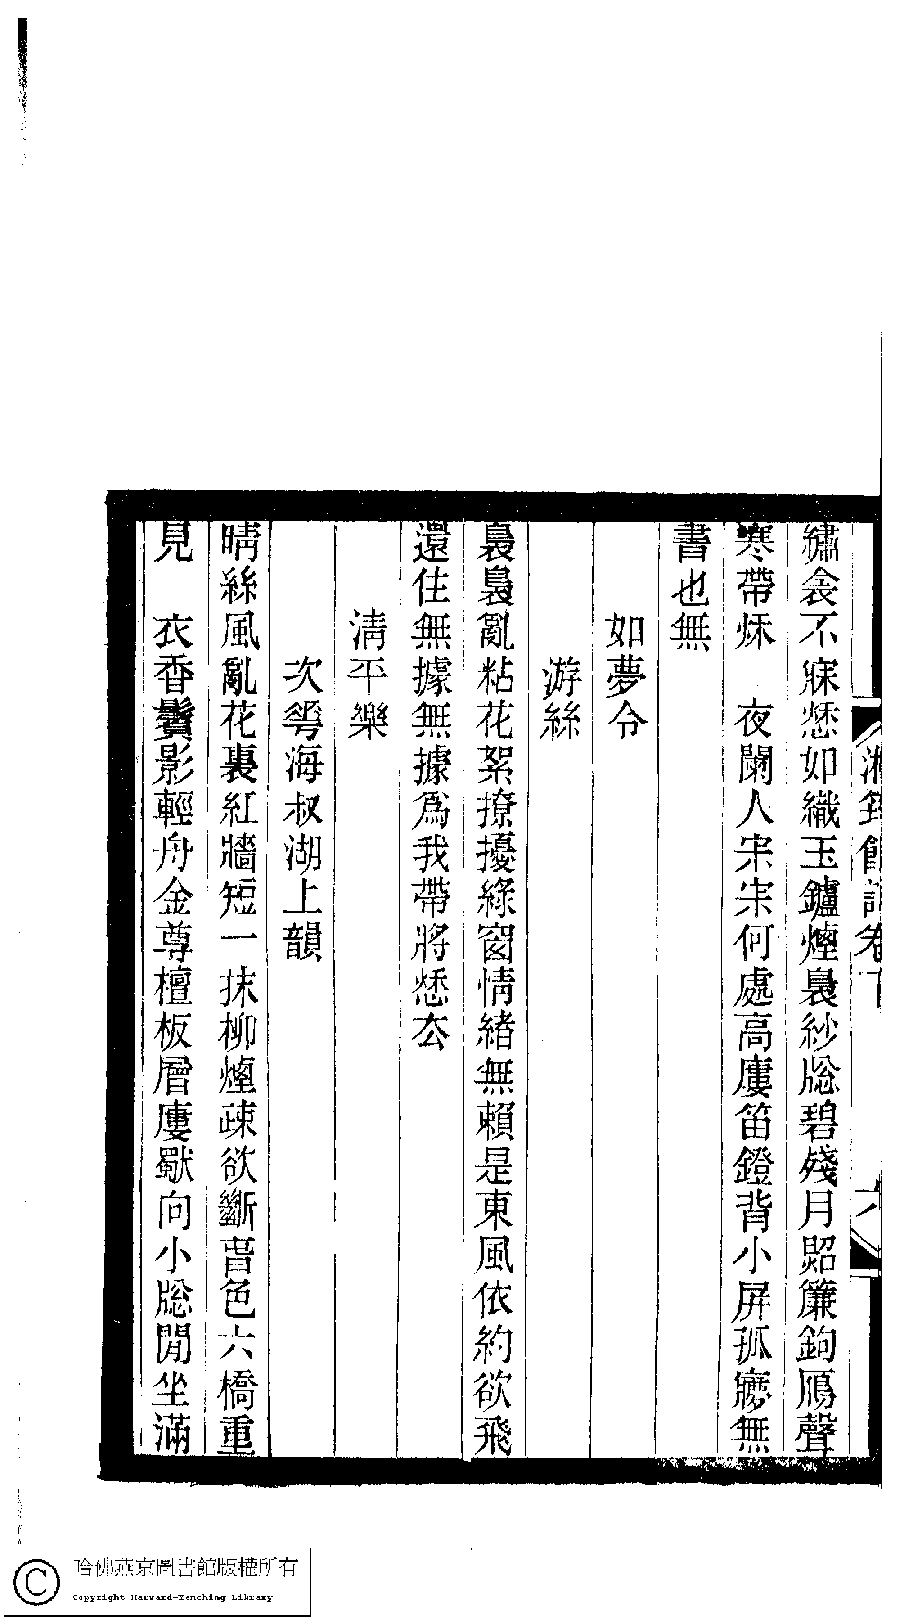 湘筠館詞卷下
六
繡衾不寐愁如織玉鑪煙裊紗牎碧殘月照簾鉤鴈聲
寒帶秌　夜闌人宋宋何處高廔笛鐙背小屏孤㝱無
書也無
如夢令
游絲
裊裊亂粘花絮撩擾綠窗情緒無賴是東風依約欲飛
還住無據無據爲我帶將愁厺
清平樂
次蕚海叔湖上韻
晴絲風亂花裏紅牆短一抹柳煙疎欲斷萅色六橋重
見　衣香鬢影輕舟金尊檀板層廔歇向小牎閒坐滿
哈佛燕京圖書館版權所有
Copyright Harvard-Yenching Library